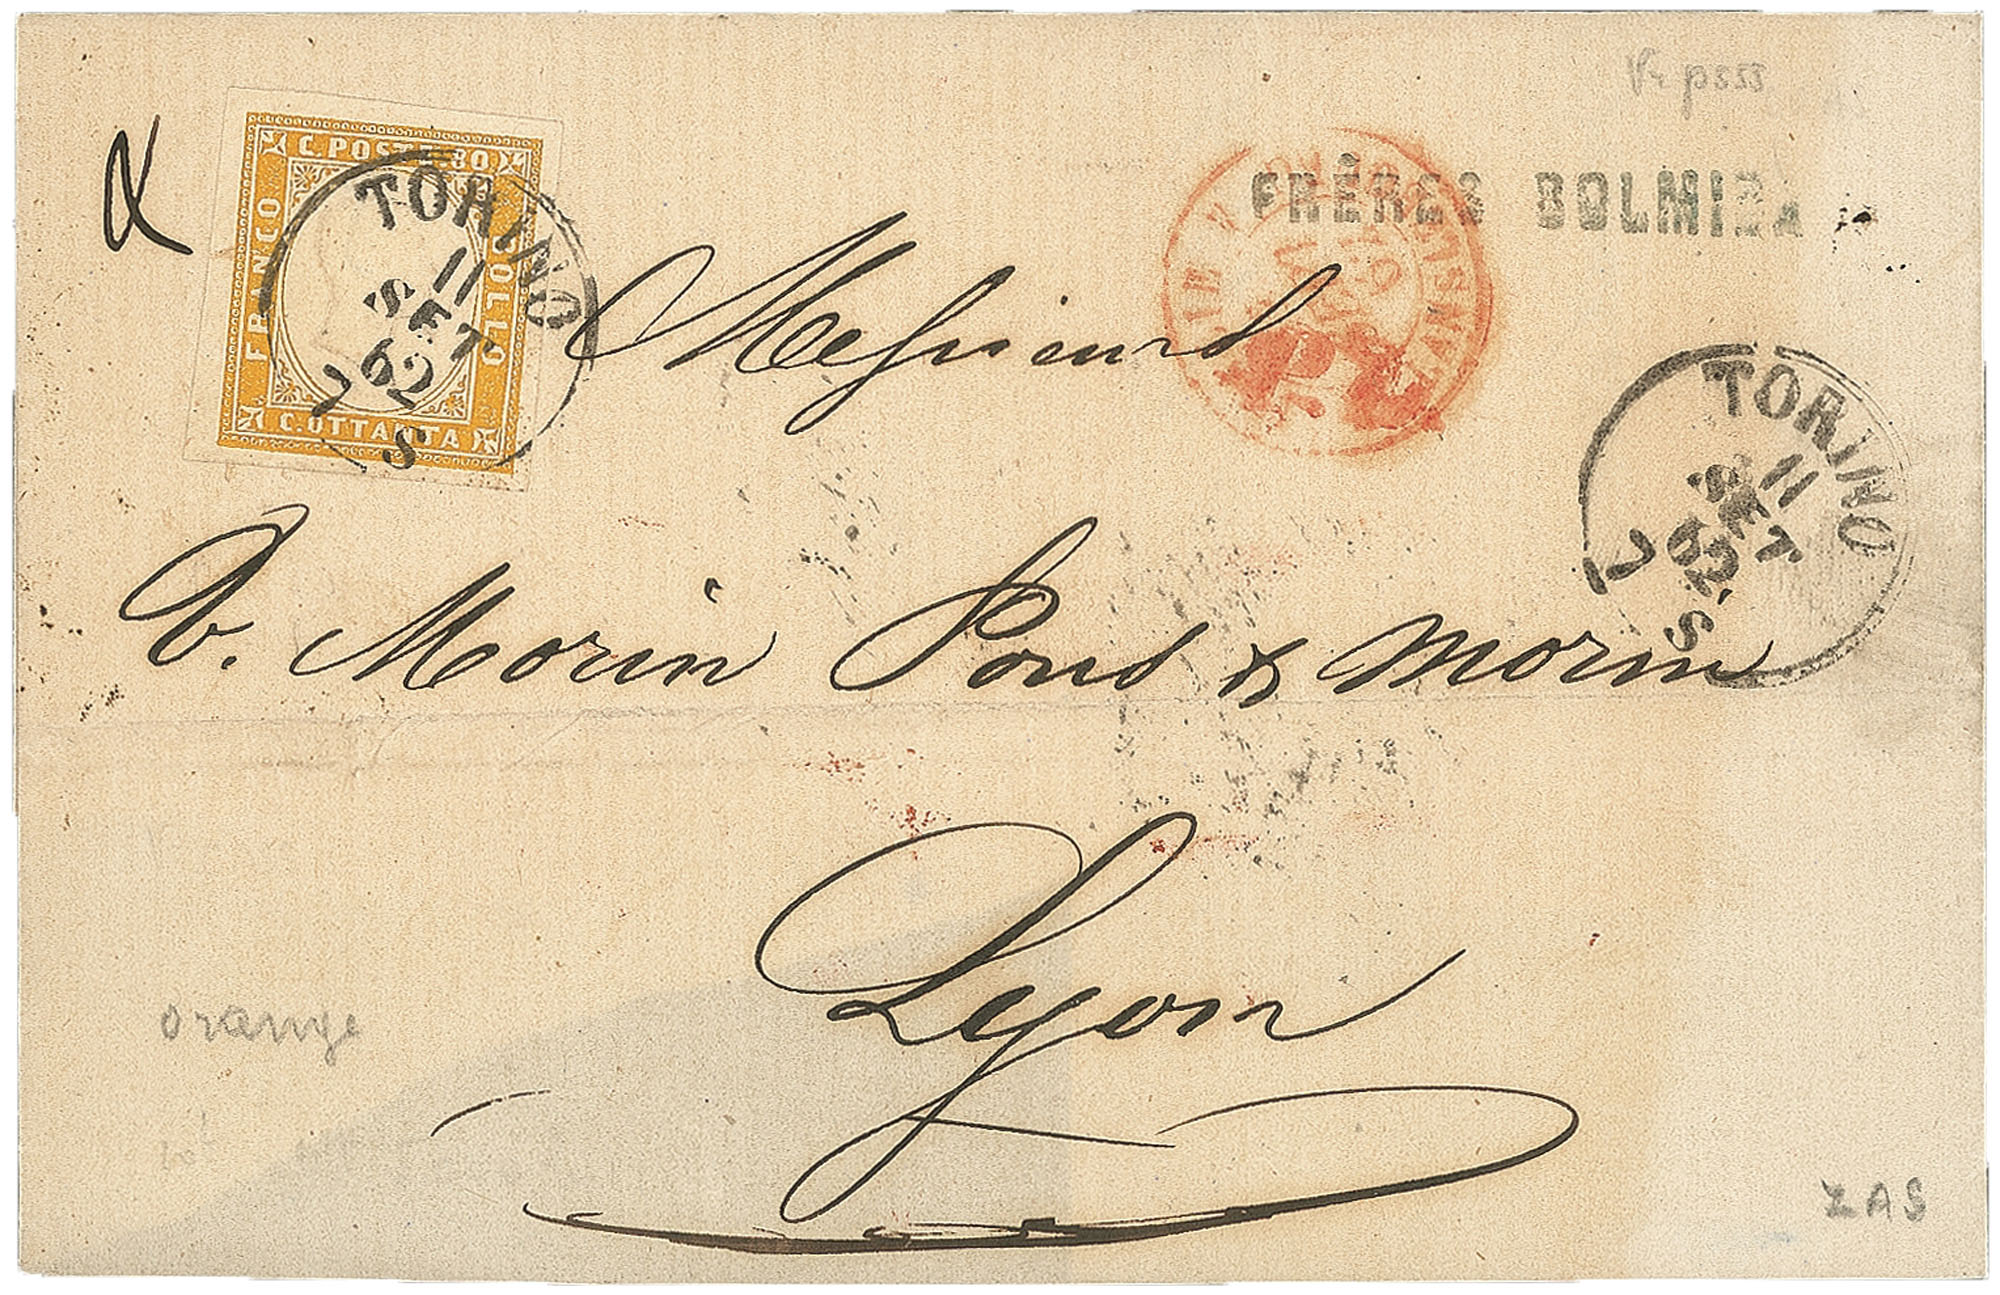 C. POSTE. 80
FRANCO
BOLLO
C. OTTANTA
TORINO
11
SET
62
7 S
FRÈRES BOLMIDA
TORINO
11
SET
62
7 S
Messieurs
V. Morin Pons & Morin
Lyon
orange
ZAS